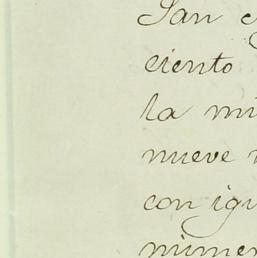 San
ciento
la mi
nueve
con igu
númer